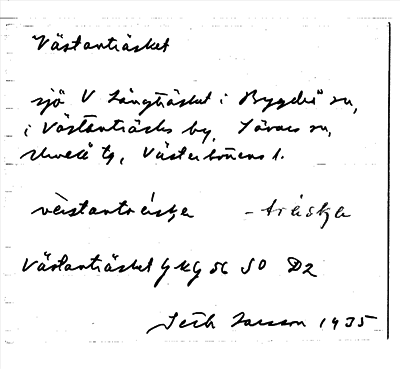 Västanträsket
sjö V Långträsket i Bygdeå sn,
i Västanträsks by, Lövånger sn,
Umeå tg, Västerbottens l.
västantrέskə - trέskə
Västanträsket GKG 56 SO D2
Seth Larsson 1935